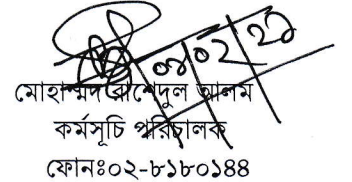 ০৪/০২/২১
মোহাম্মদ রাশেদুল আলম
কর্মসূচি পরিচালক
ফোনঃ০২-৮১৮০১৪৪